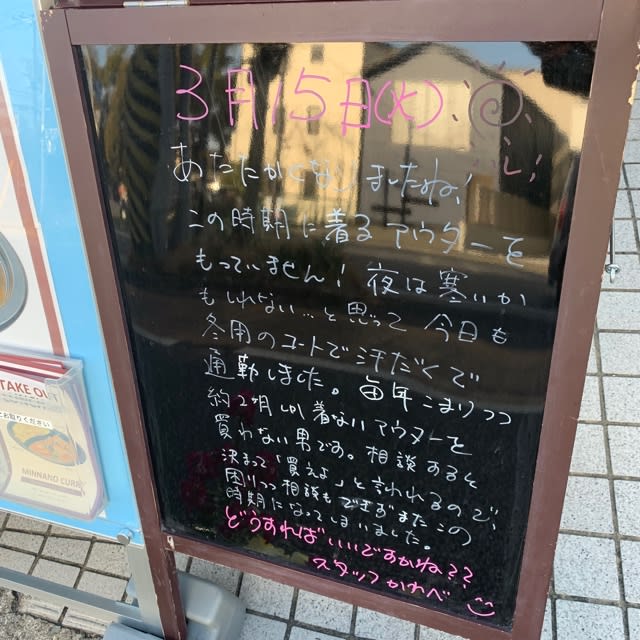 3月15日(火)
ハレ!
あたたかくなりましたね!
この時期に着るアウターを
もっていません!夜は寒いか
もしれない…と思って今日も
冬用のコートで汗だくで
通勤しました。毎年こまりつつ
約2ヶ月しか着ないアウターを
買わない男です。相談すると
決まって「買えよ」と言われるので、
困りつつ相談もできずまたこの
時期になってしまいました。
どうすればいいですかね??
スタッフ かわべ
TAKE OUT
お取りください
MINNANO CURRY